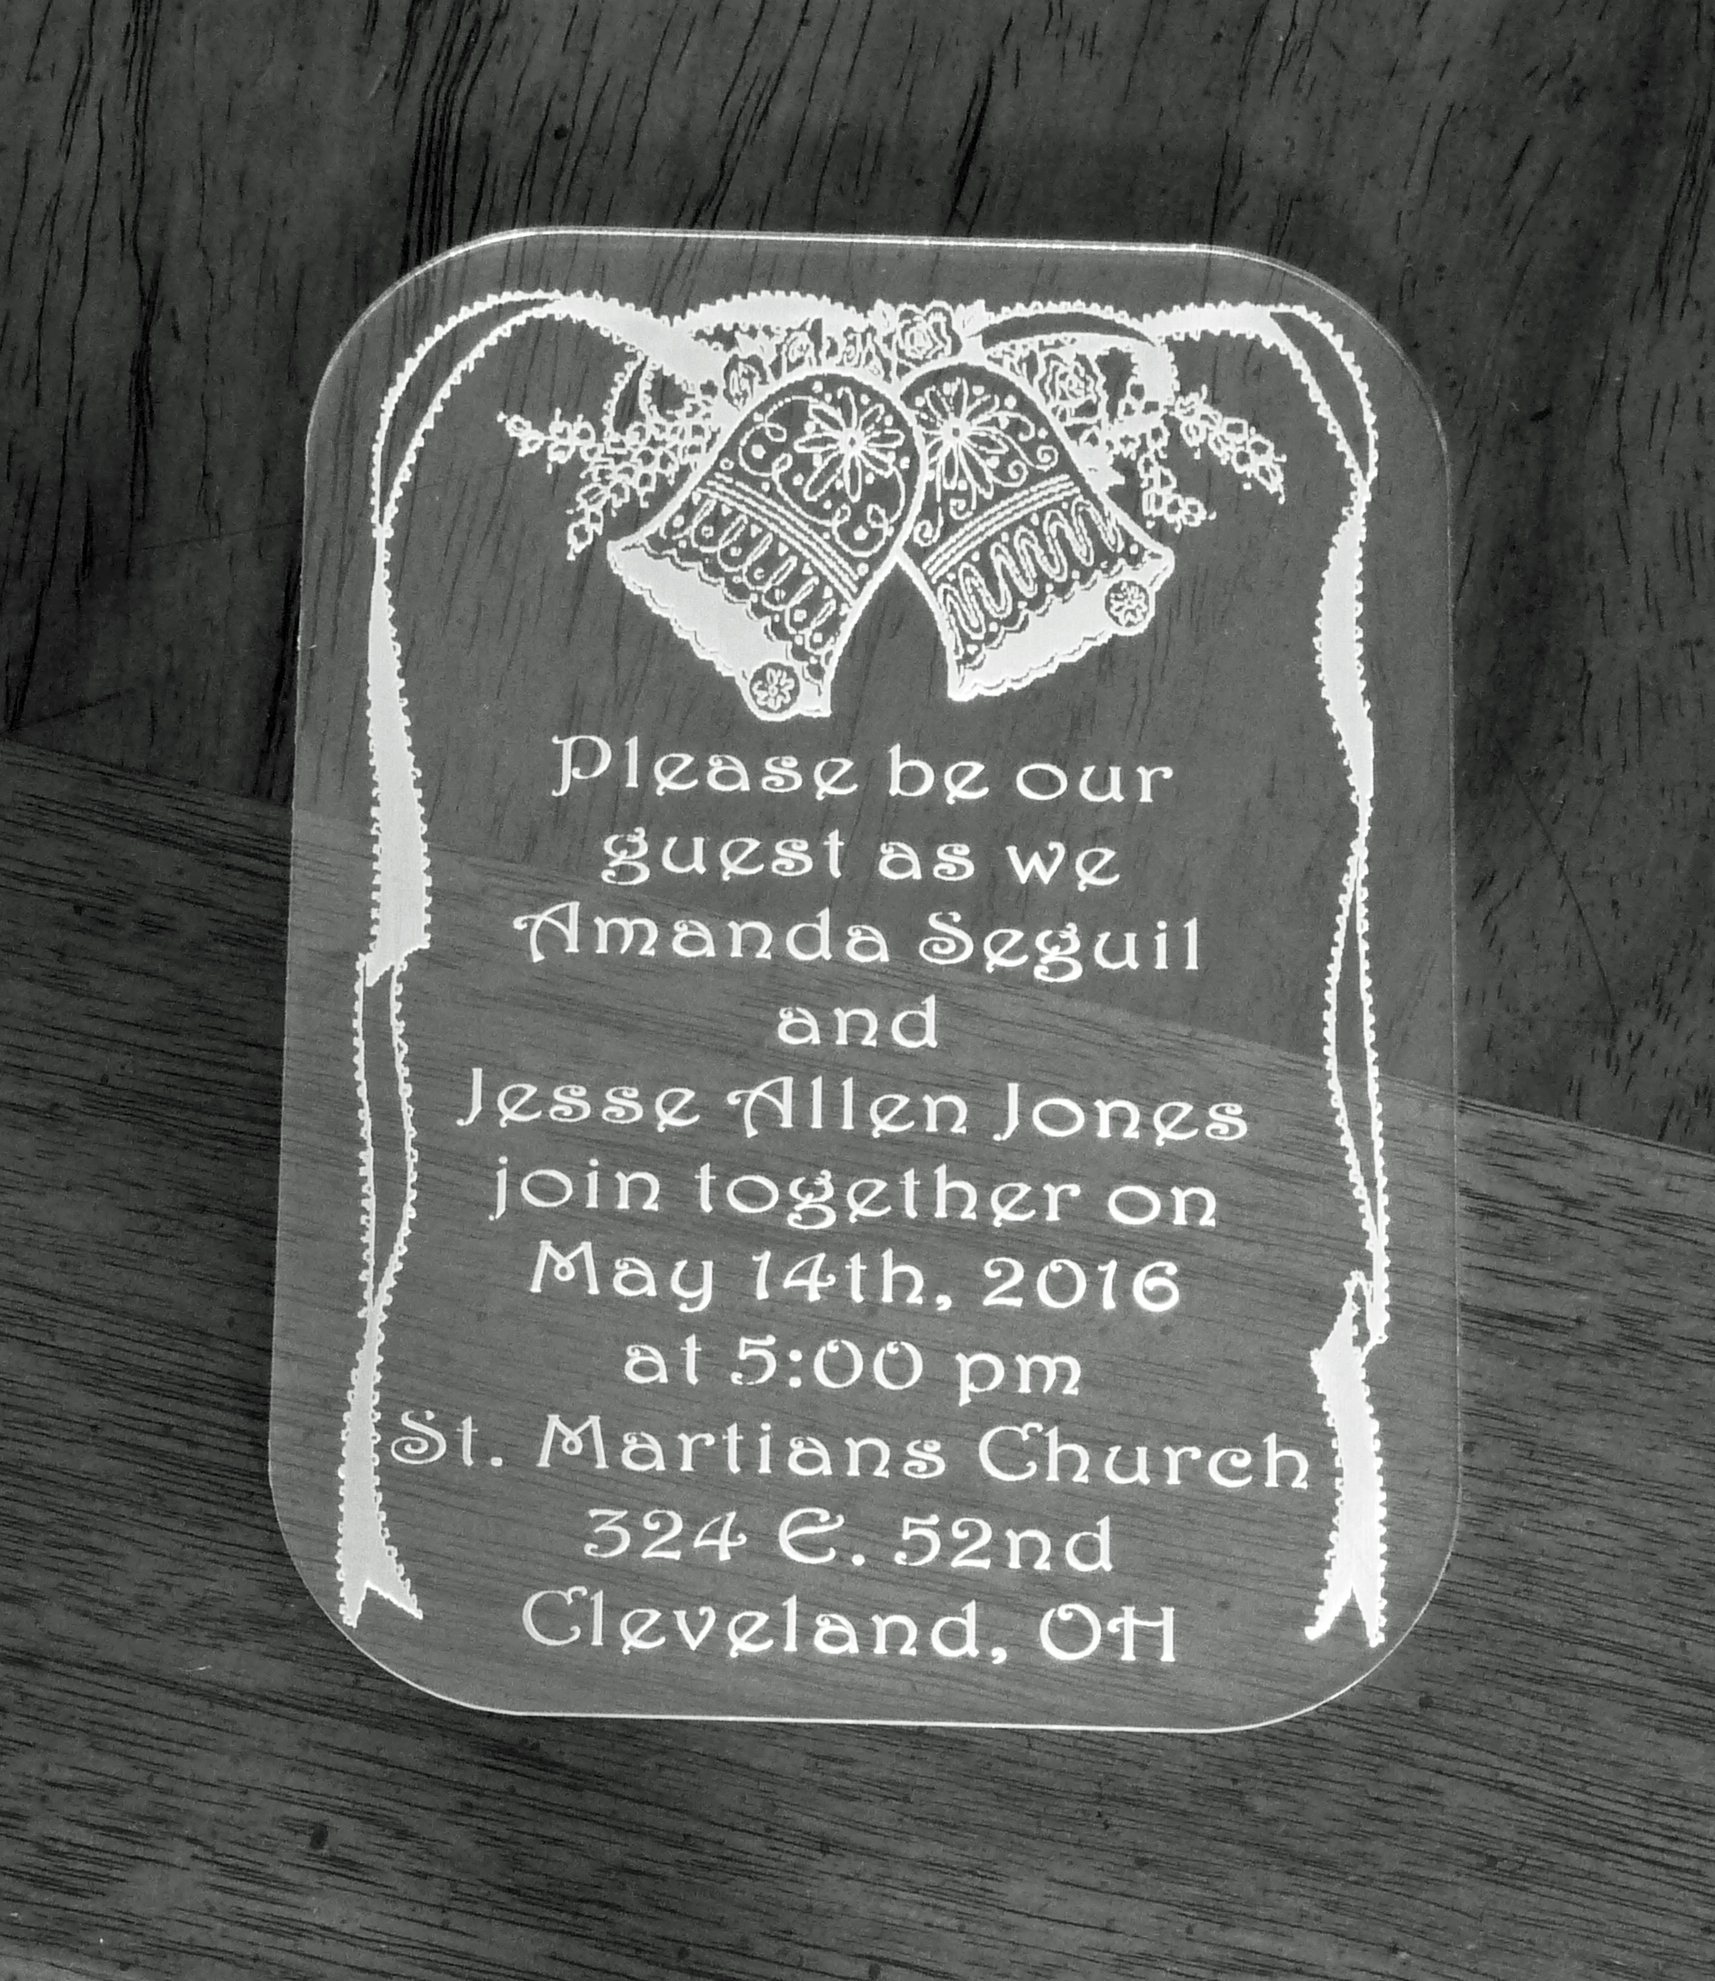 Please be our
guest as we
Amanda Seguil
and
Jesse Allen Jones
join together on
May 14th, 2016
at 5:00 pm
St. Martians Church
324 E. 52nd
Cleveland, OH